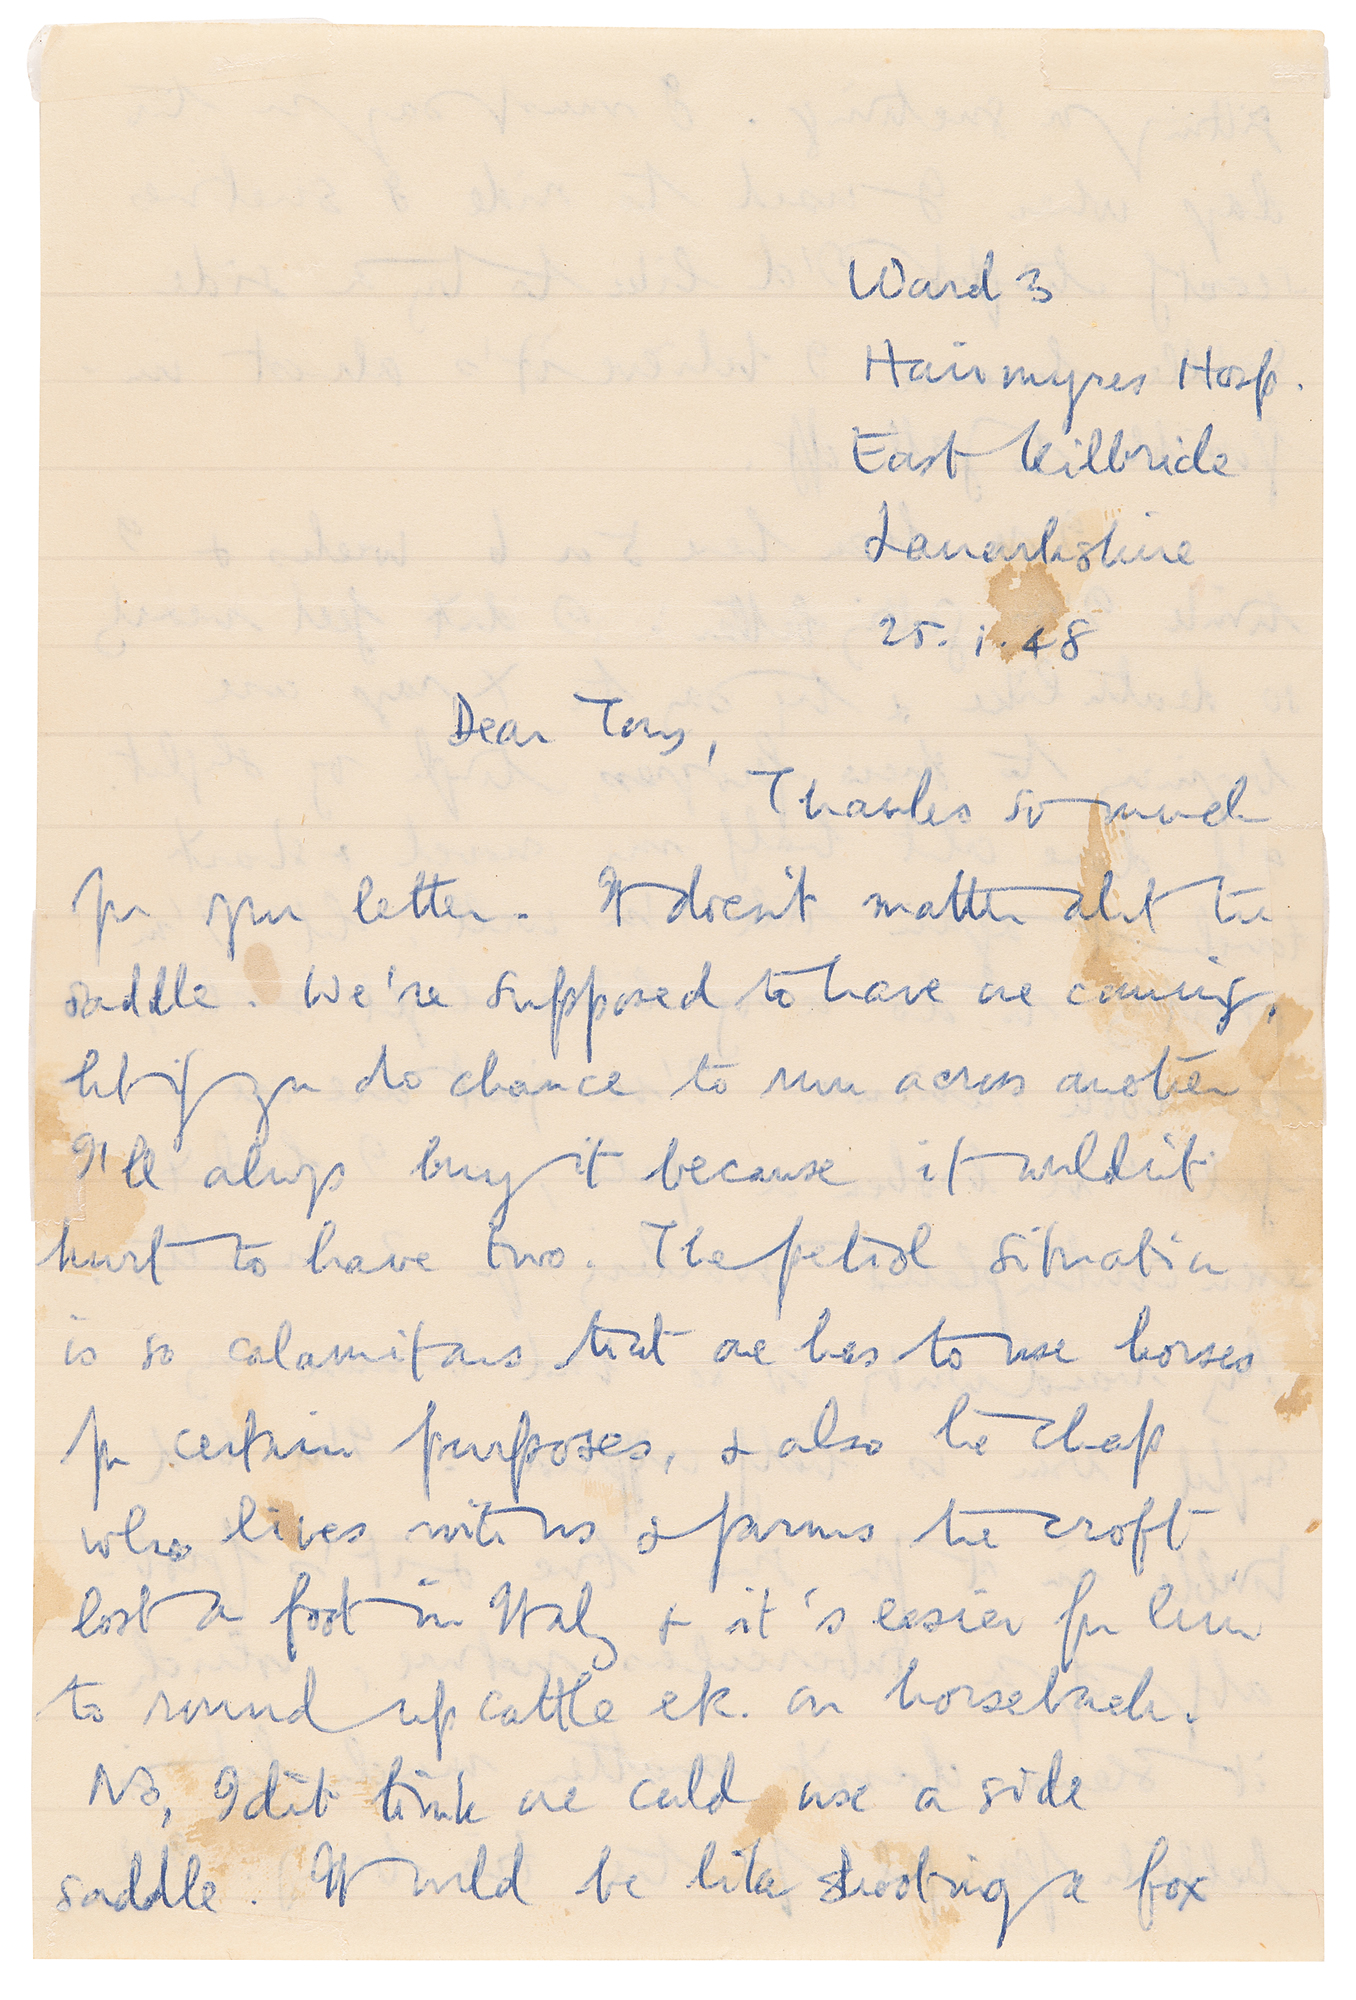 Ward 3
Hairmyres Hosp.
East Kilbride
Lanarkshire
25.1.48
Dear Tony,
Thanks so much
for your letter. It doesn't matter about the
saddle. We're supposed to have one coming,
but if you do chance to run across another
I'll always buy it because it wouldn't
hurt to have two. The petrol situation
is so calamitous that one has to use horses
for certain purposes, & also the chap
who lives with us & farms the croft
lost a foot in Italy & it's easier for him
to round up cattle etc. on horseback.
No, I don't think one could use a side
saddle. It would be like shooting a fox